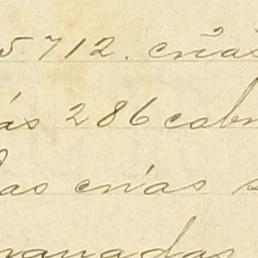 5712. crías
ás 286 cabr
as crías s
manadas